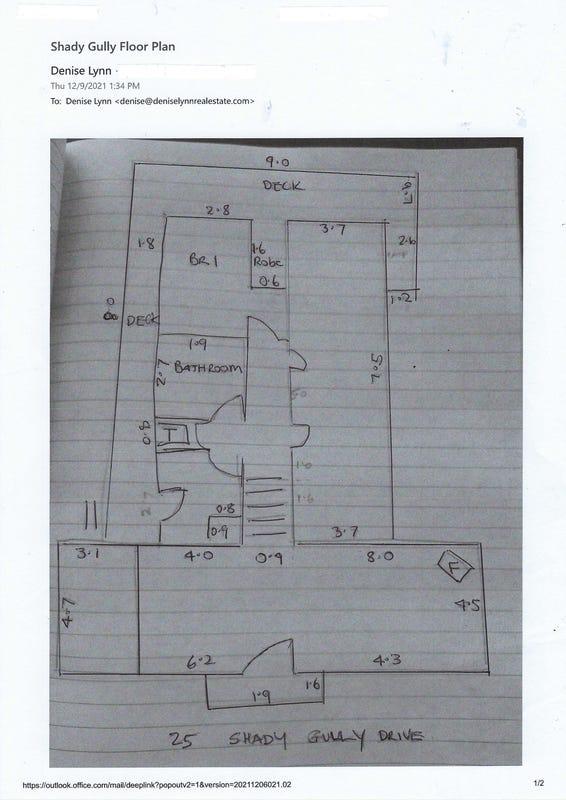 Shady Gully Floor Plan
Denise Lynn
Thu 12/9/2021 1:34 PM
To: Denise Lynn <denise@deniselynnrealestate.com>
9.0
DECK
2.8
3.7
1.8
1.6
2.6
BR1
Robe
0.6
1.2
8.0
DECK
1.9
2.7
BATHROOM
7.5
0.8
T
1.6
1.6
2.7
0.8
0.9
3.7
3.1
4.0
0.9
8.0
F
4.7
4.5
6.2
4.3
1.9
1.6
25 SHADY GULLY DRIVE
https://outlook.office.com/mail/deeplink?popoutv2=1&version=20211206021.02
1/2